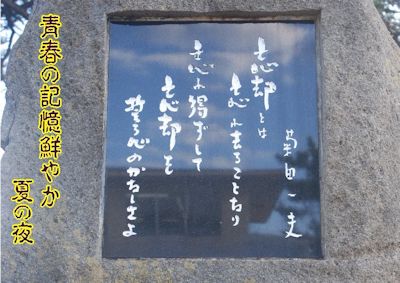 青春の記憶鮮やか
夏の夜
菊田一夫
忘却とは
忘れ去ることなり
忘れ得ずして
忘却を
誓う心のかなしさよ